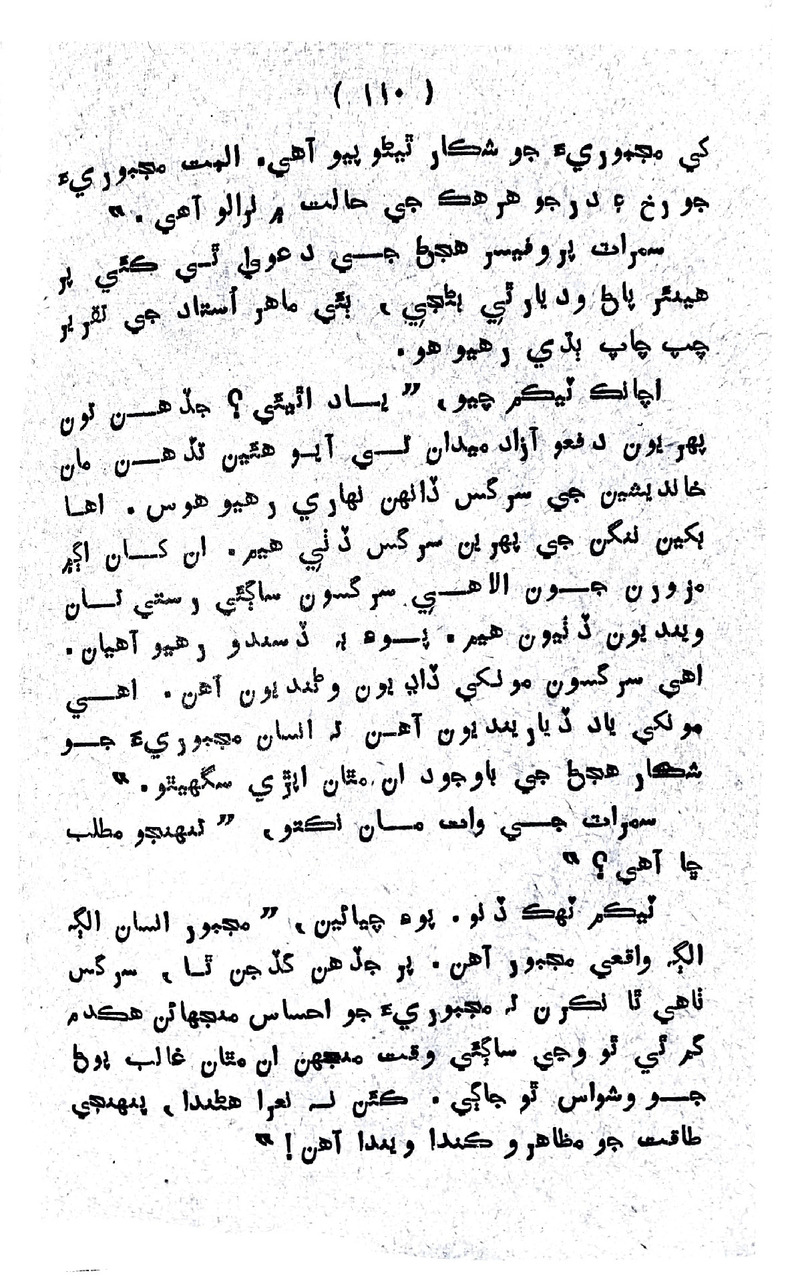 ( ١١٠ )
کي مجبوريءَ جو شڪار ٿيڻو پيو آهي. البت مجبوريءَ
جو رخ ۽ درجو هر هڪ جي حالت ۾ نرالو آهي.“
سمراٽ پروفيسر هجڻ جــي دعويٰ ٿــي ڪئي پر
هينئر پاڻ وديارٿي بڻجي، ٻئي ماهر اُستاد جي تقرير
چپ چاپ ٻڌي رهيو هو.
اچانڪ ٽيڪم چيو، ”يــاد اٿيئي؟ جڏهــن تون
پهريون دفعو آزاد ميدان تــي آيو هئين تڏهــن مان
خانديشين جي سرگس ڏانهن نهاري رهيو هوس. اهــا
ٻکين ننگن جي پهرين سرگس ڏٺي هيم. ان کــان اڳ
مزورن جــون الاهــي سرگسون ساڳئي رستي تــان
وينديون ڏٺيون هيم. پــوءِ بہ ڏسندو رهيو آهيان.
اهي سرگسون مونکي ڏاڍيون وڻنديون آهن. اهــي
مونکي ياد ڏيارينديون آهن تہ انسان مجبوريءَ جــو
شڪار هجڻ جي باوجود ان مٿان اڀڙي سگهيٿو.“
سمراٽ جــي وات مــان نڪتو، ”تنهنجو مطلب
ڇا آهي؟“
ٽيڪم ٽهڪ ڏنو. پوءِ چيائين، ”مجبور انسان الڳہ
الڳہ واقعي مجبور آهن. پر جڏهن گڏجن ٿــا، سرگس
ٺاهي ٿا نڪرن تہ مجبوريءَ جو احساس منجهائن هڪدم
گم ٿي ٿو وڃي ساڳئي وقت منجهن ان مٿان غالب پوڻ
جــو وشواس ٿو جاڳي. ڪئن نــہ نعرا هڻندا، پنهنجي
طاقت جو مظاهرو ڪندا ويندا آهن!“